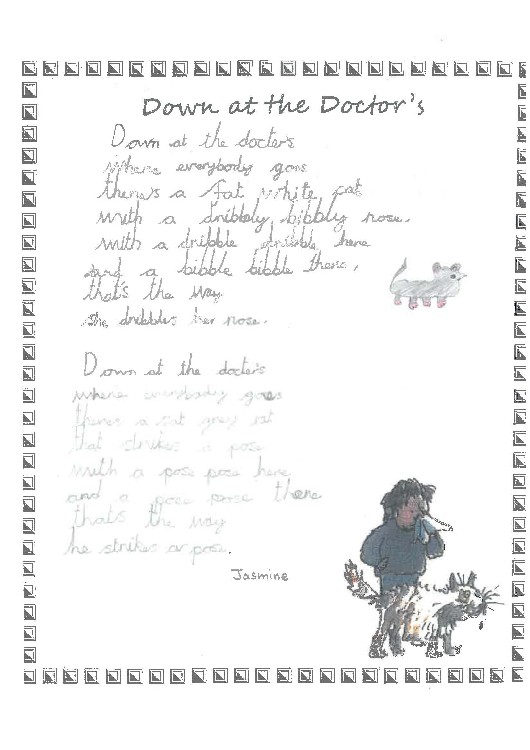 Down at the Doctor's
Down at the docters
Where everybody goes
there's a fat white cat
with a dribbly bibbly nose.
with a dribble dribble here
and a bibble bibble there,
that's the way
she dribbles her nose.
Down at the docters
where everybody goes
theres a fat grey cat
that strikes a pose
with a pose pose here
and a pose pose there
thats the way
he strikes a pose.
Jasmine